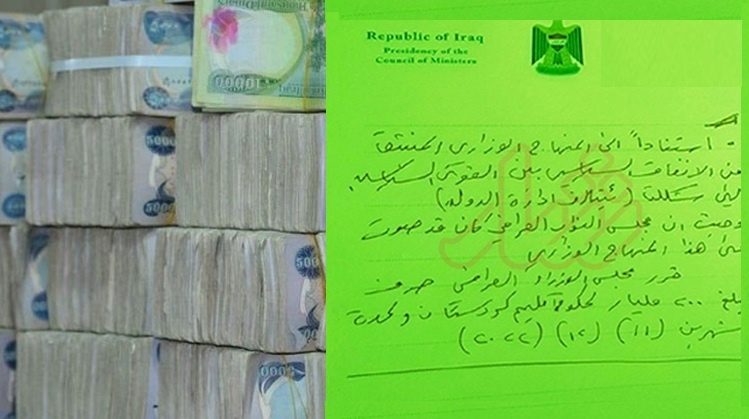 10000
5000
5000
Republic of Iraq
Presidency of the
Council of Ministers
- استناداً الى المنهاج الوزاري المنبثق
من الاتفاق السياسي بين القوى السياسية
التي شكلت (ائتلاف ادارة الدولة)
وحيث ان مجلس النواب العراقي كان قد صوت
على هذا المنهاج الوزاري
قرر مجلس الوزراء العراقي صرف
مبلغ ٢٠٠ مليار لحكومة اقليم كوردستان ولمدة
شهرين (١١) (١٢) (٢٠٢٢)